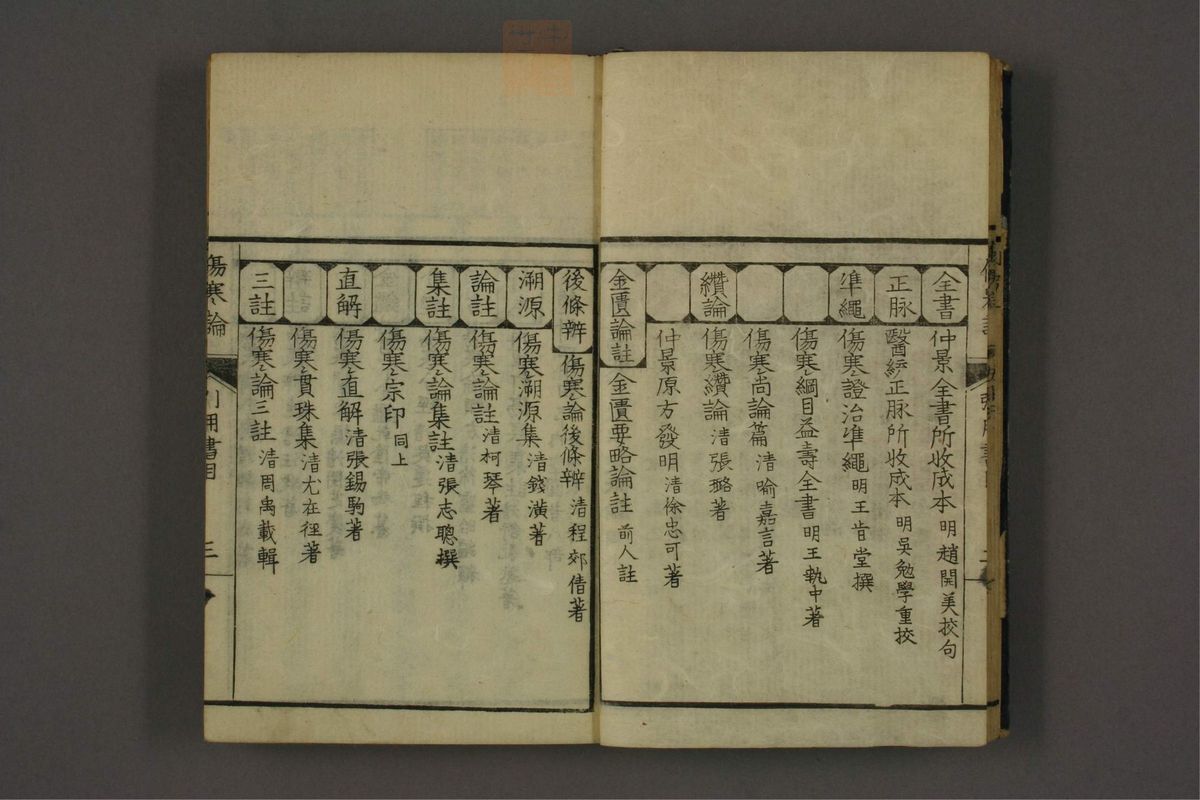 全書 仲景全書所收成本 明趙開美挍句
正脉 醫經正脉所收成本 明吳勉學重挍
準繩 傷寒證治準繩 明王肯堂撰
傷寒綱目益壽全書 明王執中著
傷寒尚論篇 清喻嘉言著
纘論 傷寒纘論 清張璐著
仲景原方發明 清徐忠可著
金匱論註 金匱要略論註 前人註
後條辨 傷寒論後條辨 清程郊倩著
溯源 傷寒溯源集 清錢潢著
論註 傷寒論註 清柯琴著
集註 傷寒論集註 清張志聰撰
傷寒宗印 同上
直解 傷寒直解 清張錫駒著
傷寒貫珠集 清尤在徑著
三註 傷寒論三註 清周禹載輯
傷寒論 引用書目 三